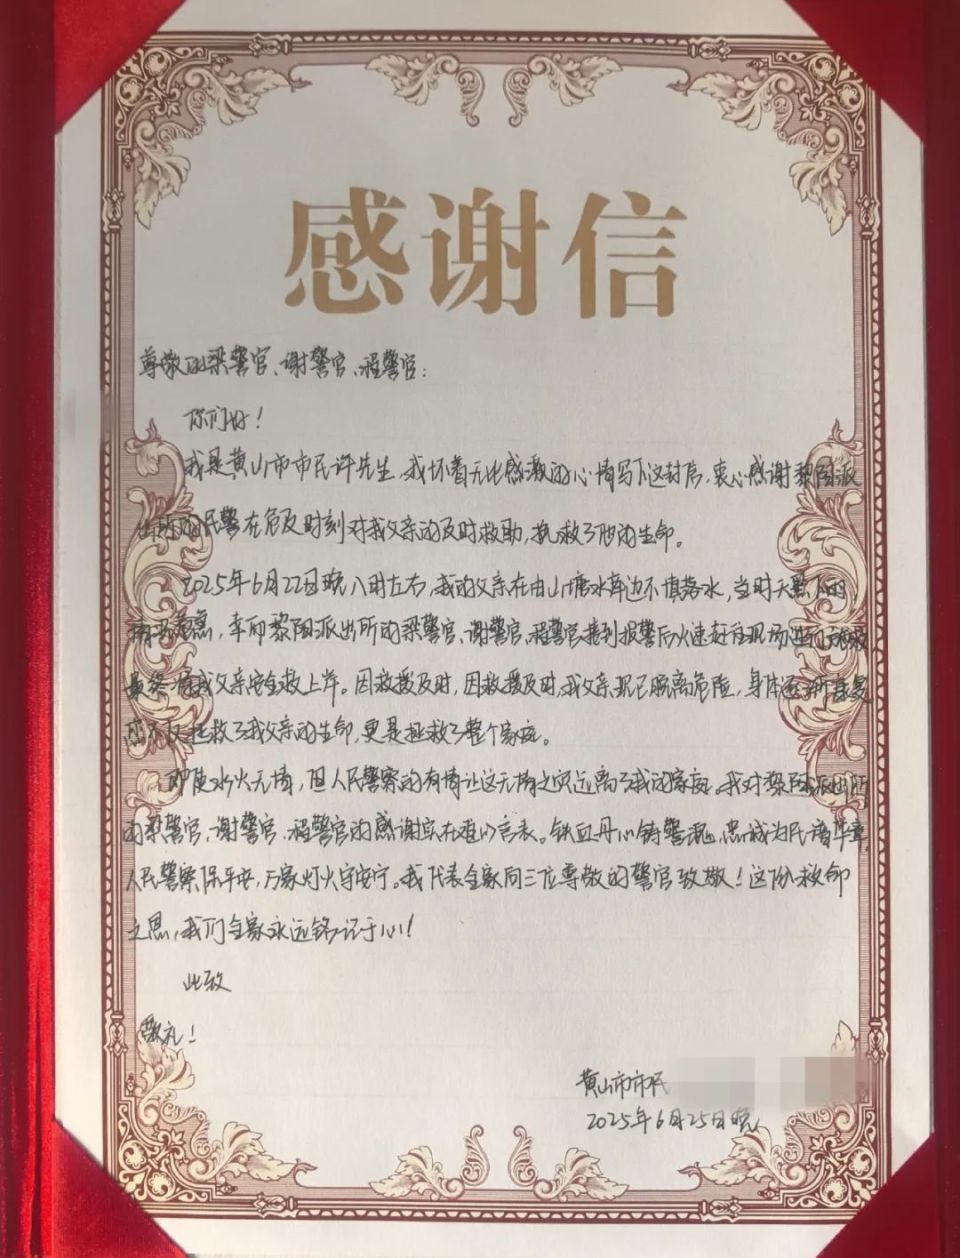 感谢信
尊敬的梁警官、谢警官、程警官：
你们好！
我是黄山市市民许先生，我怀着无比感激的心情写下这封信，衷心感谢黎阳派
出所的民警在危及时刻对我父亲的及时救助，拯救了他的生命。
2025年6月22日晚八时左右，我的父亲在由山塘水库边不慎落水，当时天黑下雨
情况危急，幸而黎阳派出所的梁警官、谢警官、程警官接到报警后火速赶往现场进行救援，
最终将我父亲安全救上岸。因救援及时，因救援及时，我父亲现已脱离危险，身体逐渐康复
您不仅拯救了我父亲的生命，更是拯救了整个家庭。
即使水火无情，但人民警察的有情让这无情之灾远离了我的家庭。我对黎阳派出所
的梁警官、谢警官、程警官的感谢实在难以言表。铁血丹心铸警魂，忠诚为民谱华章，
人民警察保平安，万家灯火守安宁。我代表全家向三位尊敬的警官致敬！这份救命
之恩，我们全家永远铭记于心！
此致
敬礼！
黄山市市民
2025年6月25日晚